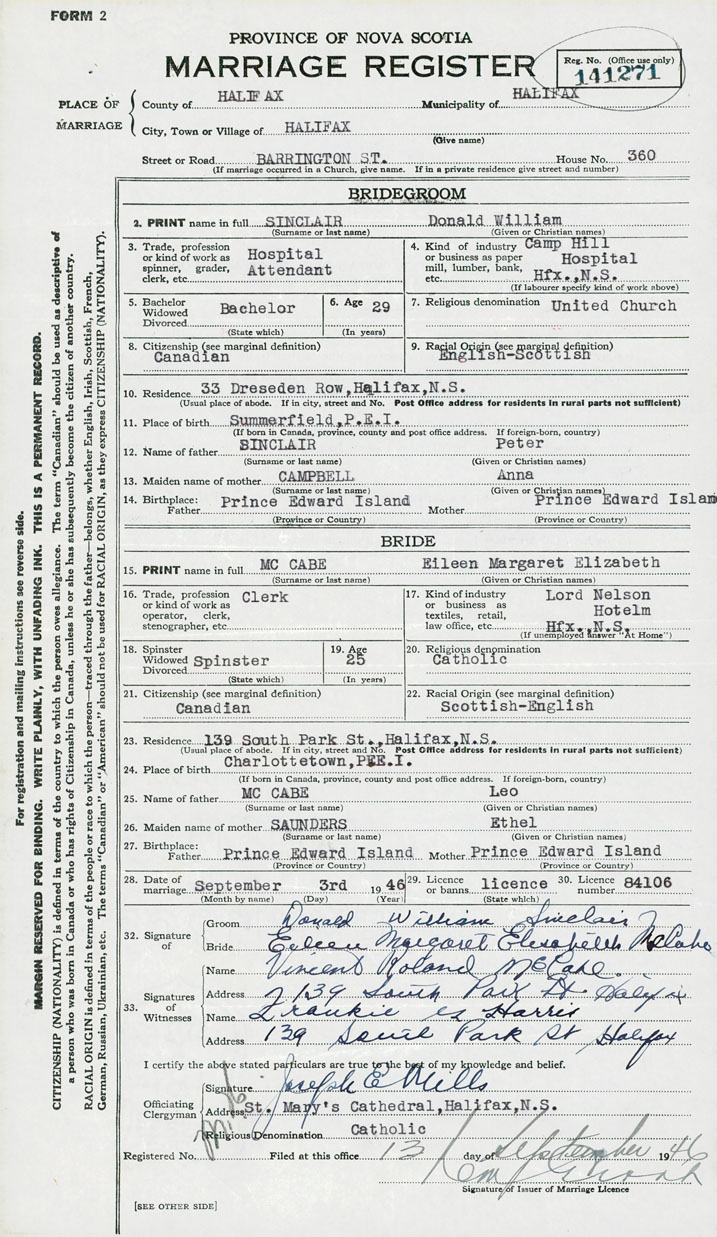 FORM 2
PROVINCE OF NOVA SCOTIA
MARRIAGE REGISTER
Reg. No. (Office use only)
141271
PLACE OF MARRIAGE
County of HALIFAX Municipality of HALIFAX
City, Town or Village of HALIFAX
(Give name)
Street or Road BARRINGTON ST. House No. 360
(If marriage occurred in a Church, give name. If in a private residence give street and number)
BRIDEGROOM
2. PRINT name in full SINCLAIR Donald William
(Surname or last name) (Given or Christian names)
3. Trade, profession or kind of work as spinner, grader, clerk, etc. Hospital Attendant
4. Kind of industry or business as paper mill, lumber, bank, etc. Camp Hill Hospital Hfx.,N.S.
(If labourer specify kind of work above)
5. Bachelor Widowed Divorced Bachelor
(State which)
6. Age 29
(In years)
7. Religious denomination United Church
8. Citizenship (see marginal definition)
Canadian
9. Racial Origin (see marginal definition)
English-Scottish
10. Residence 33 Dreseden Row,Halifax,N.S.
(Usual place of abode. If in city, street and No. Post Office address for residents in rural parts not sufficient)
11. Place of birth Summerfield,P.E.I.
(If born in Canada, province, county and post office address. If foreign-born, country)
12. Name of father SINCLAIR Peter
(Surname or last name) (Given or Christian names)
13. Maiden name of mother CAMPBELL Anna
(Surname or last name) (Given or Christian names)
14. Birthplace: Father Prince Edward Island Mother Prince Edward Islan
(Province or Country) (Province or Country)
BRIDE
15. PRINT name in full MC CABE Eileen Margaret Elizabeth
(Surname or last name) (Given or Christian names)
16. Trade, profession or kind of work as operator, clerk, stenographer, etc. Clerk
17. Kind of industry or business as textiles, retail, law office, etc. Lord Nelson Hotelm Hfx.,N.S.
(If unemployed answer "At Home")
18. Spinster Widowed Divorced Spinster
(State which)
19. Age
25
(In years)
20. Religious denomination
Catholic
21. Citizenship (see marginal definition)
Canadian
22. Racial Origin (see marginal definition)
Scottish-English
23. Residence 139 South Park St.,Halifax,N.S.
(Usual place of abode. If in city, street and No. Post Office address for residents in rural parts not sufficient)
24. Place of birth Charlottetown,P.E.I.
(If born in Canada, province, county and post office address. If foreign-born, country)
25. Name of father MC CABE Leo
(Surname or last name) (Given or Christian names)
26. Maiden name of mother SAUNDERS Ethel
(Surname or last name) (Given or Christian names)
27. Birthplace: Father Prince Edward Island Mother Prince Edward Island
(Province or Country) (Province or Country)
28. Date of marriage September 3rd 1946
(Month by name) (Day) (Year)
29. Licence or banns. licence
(State which)
30. Licence number 84106
32. Signature of
Groom Donald William Sinclair
Bride Eileen Margaret Elizabeth McCabe
33. Signatures of Witnesses
Name Vincent Roland McCabe.
Address 139 South Park St. Halifax
Name Frankie Harris
Address 139 South Park St Halifax
I certify the above stated particulars are true to the best of my knowledge and belief.
Officiating Clergyman
Signature Joseph E Mills
Address St. Mary's Cathedral,Halifax,N.S.
Religious Denomination Catholic
Registered No. Filed at this office 13 day of September 1946
Signature of Issuer of Marriage Licence
[SEE OTHER SIDE]
For registration and mailing instructions see reverse side.
MARGIN RESERVED FOR BINDING. WRITE PLAINLY, WITH UNFADING INK. THIS IS A PERMANENT RECORD.
CITIZENSHIP (NATIONALITY) is defined in terms of the country to which the person owes allegiance. The term "Canadian" should be used as descriptive of
a person who was born in Canada or who has rights of Citizenship in Canada, unless he or she has subsequently become the citizen of another country.
RACIAL ORIGIN is defined in terms of the people or race to which the person—traced through the father—belongs, whether English, Irish, Scottish, French,
German, Russian, Ukrainian, etc. The terms "Canadian" or "American" should not be used for RACIAL ORIGIN, as they express CITIZENSHIP (NATIONALITY).